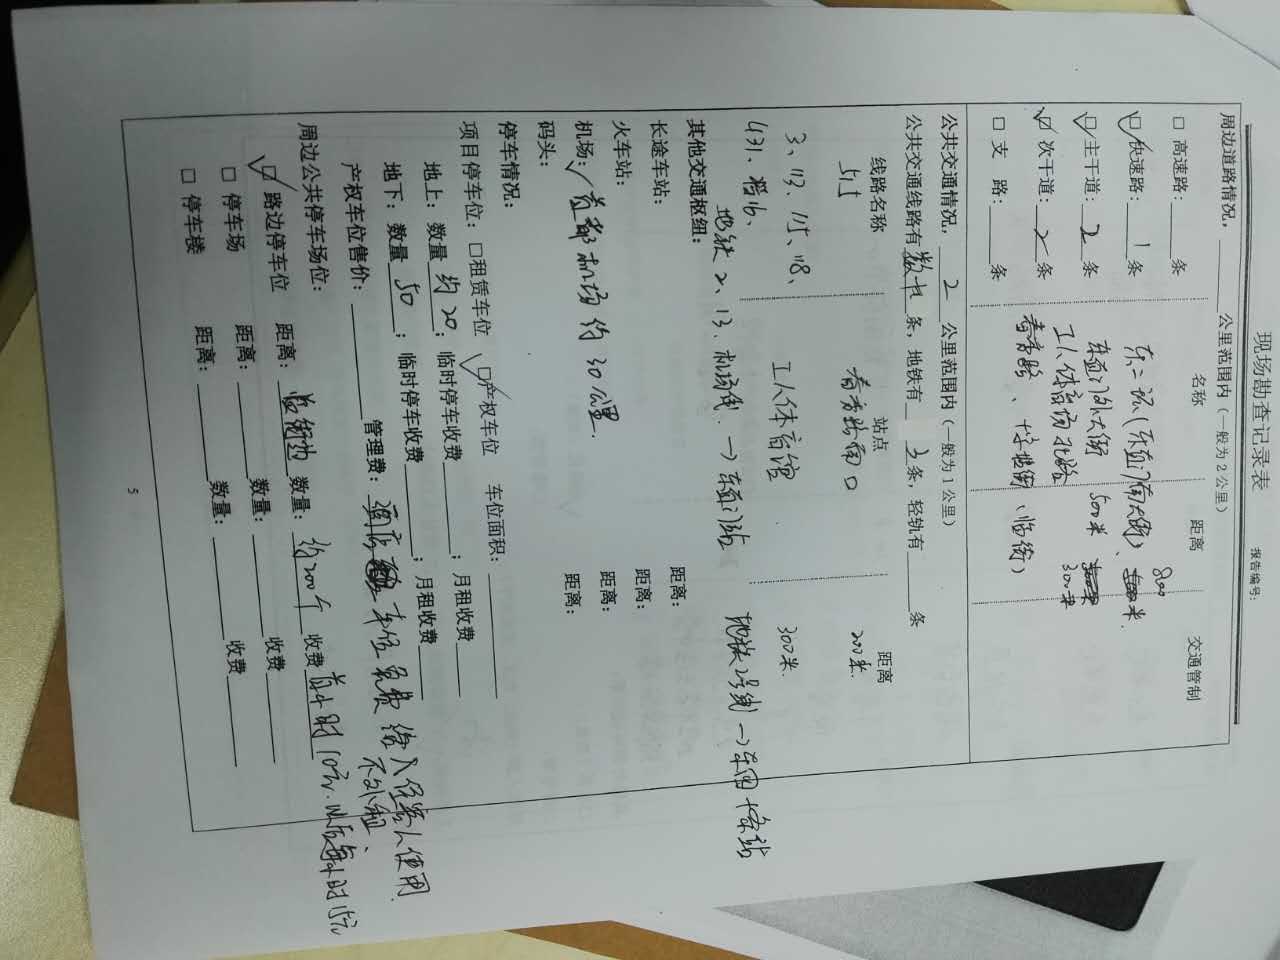 现场勘查记录表
报告编号:
周边道路情况,______公里范围内(一般为2公里)
名称 距离 交通管制
□ 高速路:______条
☑ 快速路: 1 条 东二环(东直门南大街)、 800米.
☑ 主干道: 2 条 东直门外大街 500米
工人体育场北路 300米
☑ 次干道: 2 条 春秀路、十字坡街(临街)
□ 支 路:______条
公共交通情况, 2 公里范围内(一般为1公里)
公共交通线路有 数十 条,地铁有 3 条,轻轨有______条
线路名称 站点 距离
515 春秀路南口 200米
3、113、115、118、 工人体育馆 300米
431、
地铁2、13、机场线. → 东直门站 地铁2号线 → 东四十条站
其他交通枢纽:
长途车站: 距离:
火车站: 距离:
机场:√ 首都机场 约30公里. 距离:
码头: 距离:
停车情况:
项目停车位: □租赁车位 ☑产权车位 车位面积:______
地上: 数量 约20; 临时停车收费______; 月租收费______
地下: 数量 50; 临时停车收费______; 月租收费______
产权车位售价:______ 管理费: 酒店 车位免费给入住客人使用.
不外租、
周边公共停车场位:
☑ 路边停车位 距离: 数量: 约200个 收费 首小时10元.以后每小时15元
□ 停车场 距离:______数量:______收费______
□ 停车楼 距离:______数量:______收费______
5